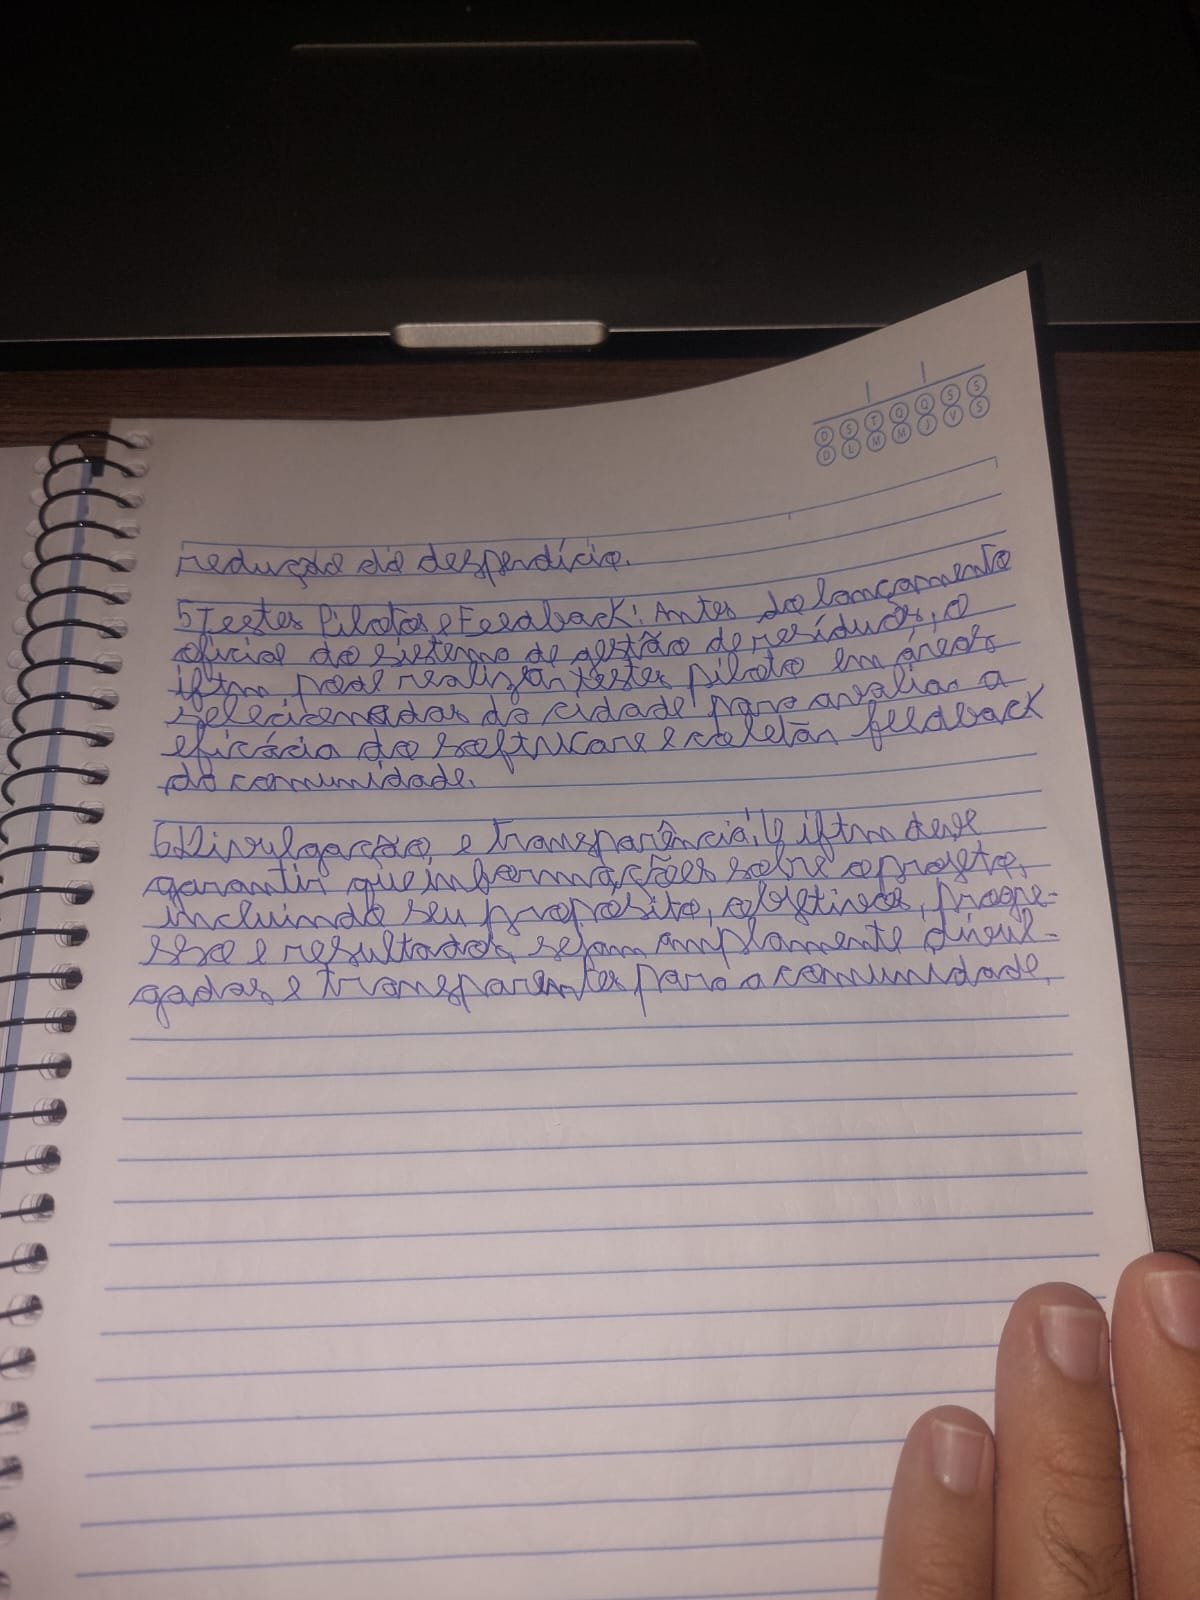 D S T Q Q S S
D L M M J V S
redução do desperdício.
5 Testes Pilotos e Feedback: Antes do lançamento
oficial do sistema de gestão de resíduos, o
iftm pode realizar testes piloto em áreas
selecionadas da cidade para avaliar a
eficácia do software e coletar feedback
da comunidade.
6 Divulgação e transparência: O iftm deve
garantir que informações sobre o projeto,
incluindo seu propósito, objetivos, progre-
sso e resultados, sejam amplamente divul-
gadas e transparentes para a comunidade.